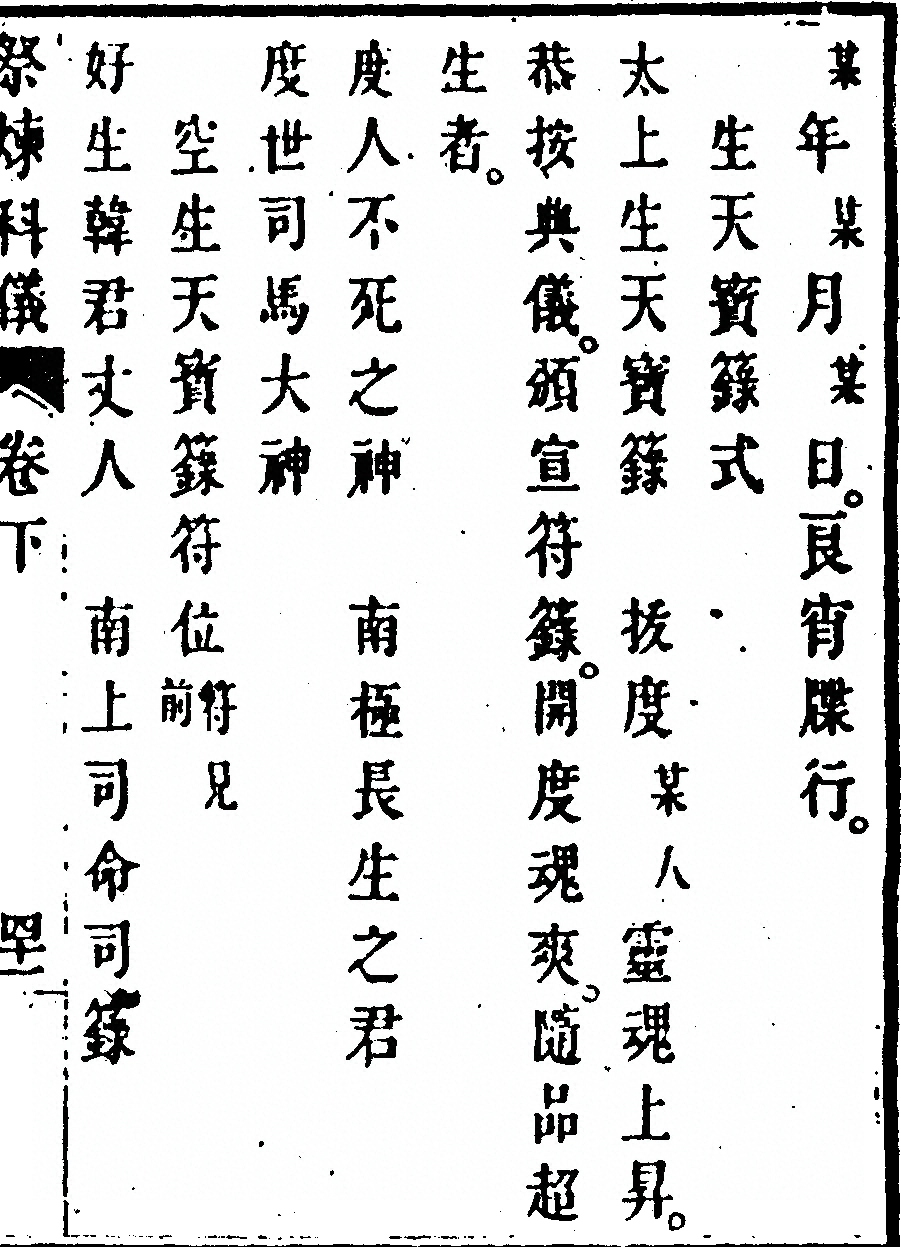 某年某月某日。良宵牒行。
生天寶籙式
太上生天寶籙 拔度某人靈魂上昇。
恭按典儀。頒宣符籙。開度魂爽。隨品超
生者。
度人不死之神 南極長生之君
度世司馬大神
空生天寶籙符位符見前
好生韓君丈人 南上司命司籙
祭煉科儀 卷下 四十一